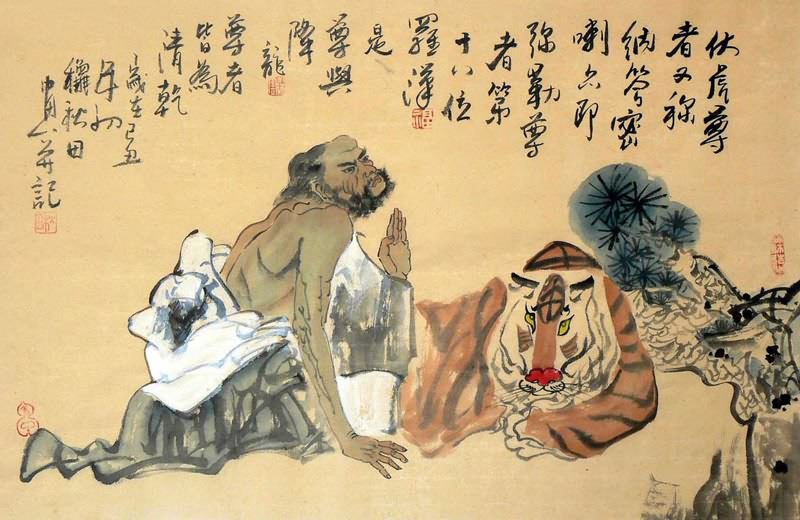 伏虎尊
者又称
納答密
喇亦即
弥勒尊
者第
十八位
羅漢
是
尊與
降
龍
尊者
皆為
清乾
歲在己丑
年初
秋田
并記